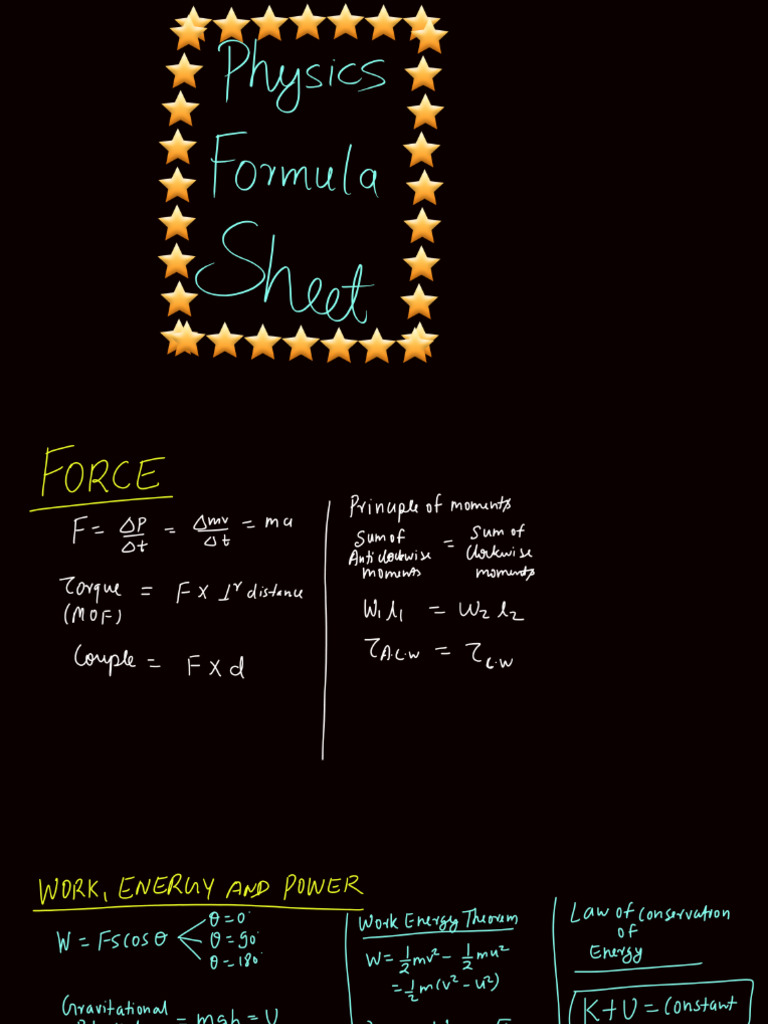 Physics
Formula
Sheet
FORCE
F = ΔP/Δt = Δmv/Δt = ma
Torque = F × ⊥r distance
(MOF)
Couple = F × d
Principle of moments
Sum of Anticlockwise moments = Sum of Clockwise moments
W₁l₁ = W₂l₂
τA.C.W = τC.W
WORK, ENERGY AND POWER
W = Fscosθ
θ=0°
θ=90°
θ=180°
Gravitational
= mgh = U
Work Energy Theorem
W = ½mv² - ½mu²
= ½m(v² - u²)
Law of Conservation
of
Energy
K + U = Constant